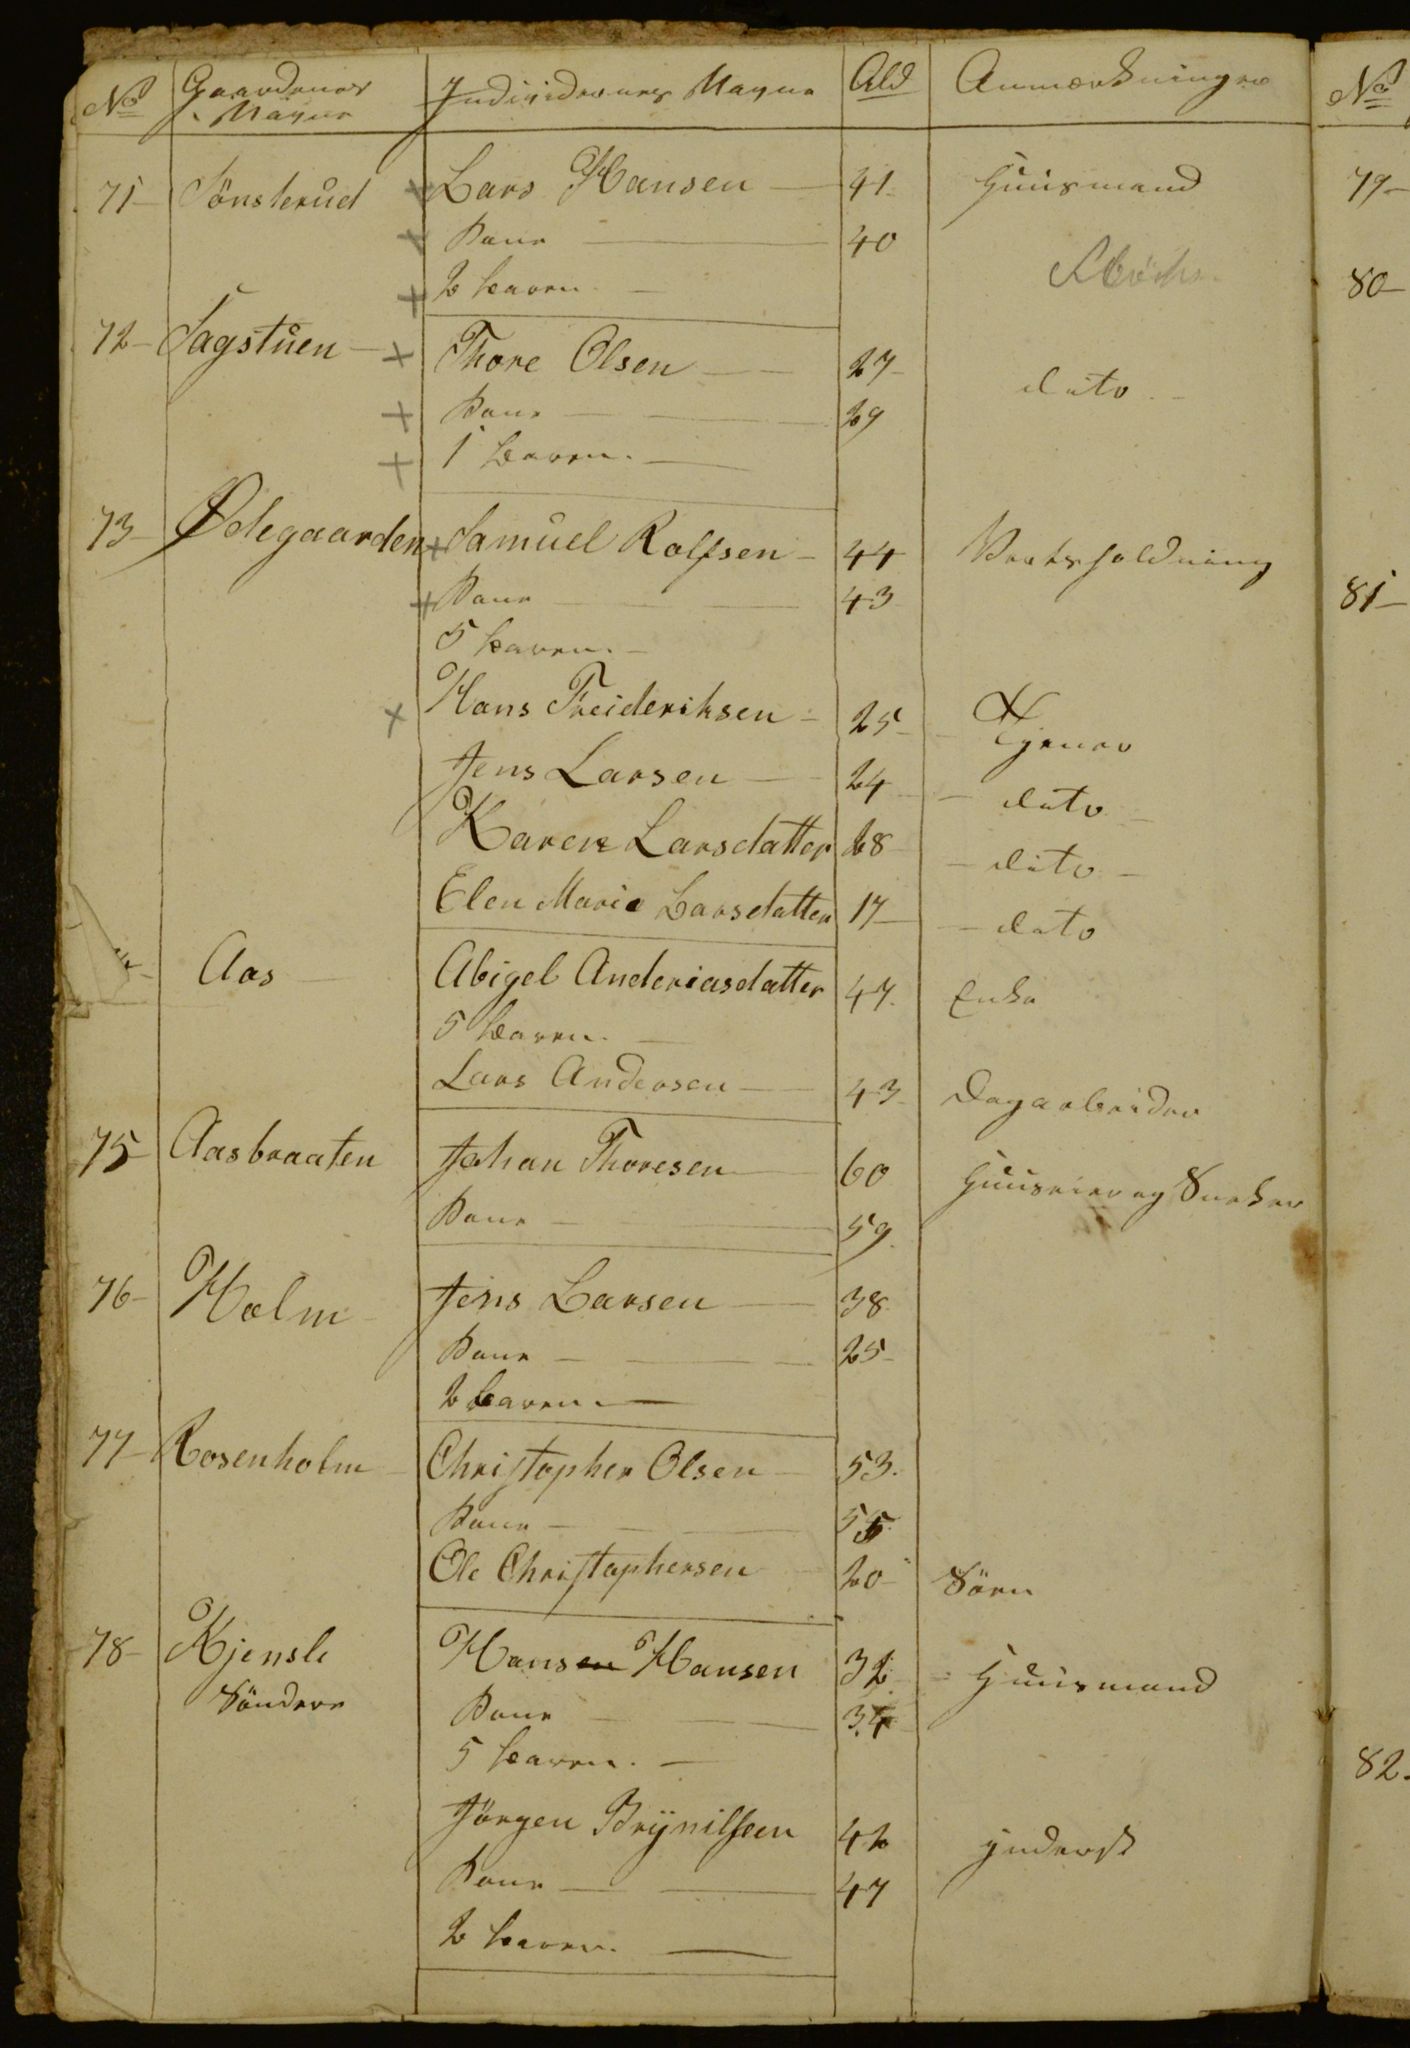 No Gaardenes Navne Individernes Navne Ald Anmærkninger No
71 Tønsterud + Lars Hansen 41 Huusmand 79
+ Kone 40
+ 2 Børn 80
72 Sagstuen + Thore Olsen 27 dito
+ Kone 29
+ 1 Barn
73 Ødegaarden + Samuel Rolfsen 44 Vertsholdning
+ Kone 43 81
5 Børn
+ Hans Freideriksen 25 Tjener
Jens Larsen 24 dito
Karen Larsdatter 28 dito
Elen Marie Larsdatter 17 dito
Aas Abigel Anderiasdatter 47 Enke
5 Børn
Lars Andersen 43 Dagarbeider
75 Aasbraaten Johan Thoresen 60 Huuseier og Sneker
Kone 59
76 Holm Jens Larsen 38
Kone 25
2 Børn
77 Rosenholm Christopher Olsen 53
Kone 55
Ole Christophersen 20 Sön
78 Kjensli Hansen Hansen 32 Huusmand
Söndere Kone 34
5 Børn
Jörgen Brÿnilsen 42 Inderst 82
Kone 47
2 Børn